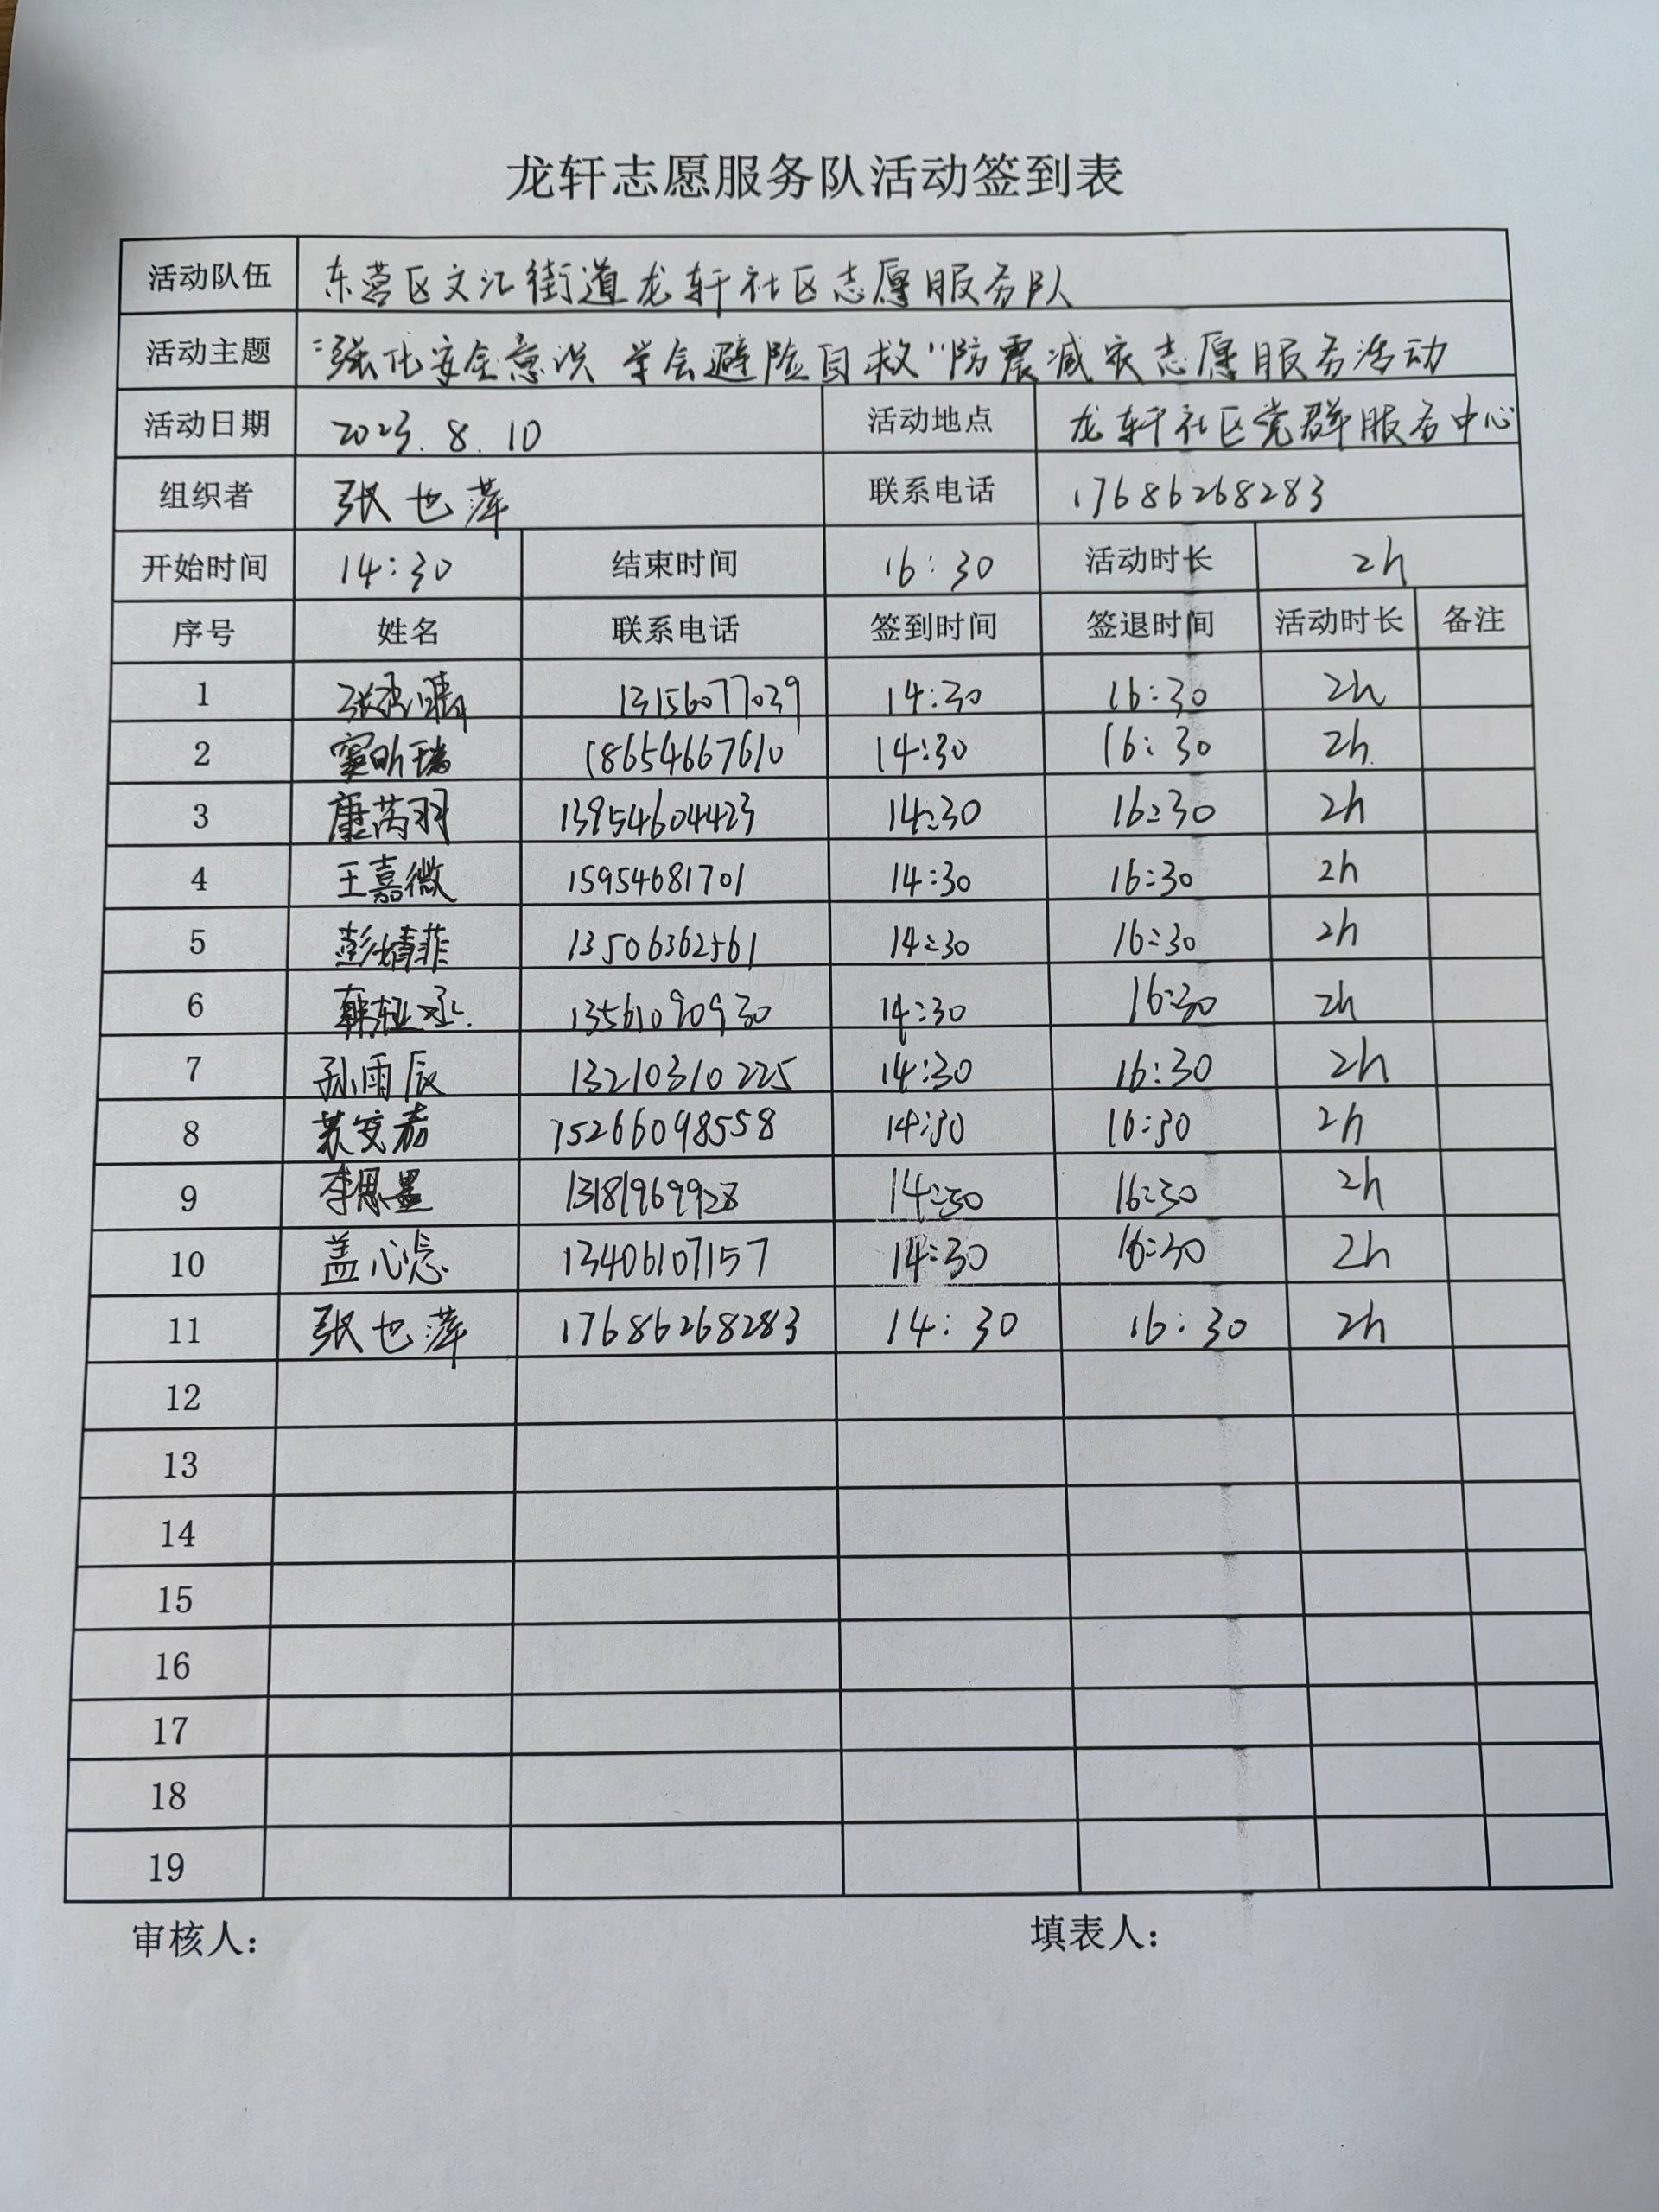 龙轩志愿服务队活动签到表
活动队伍 东营区文汇街道龙轩社区志愿服务队
活动主题 “强化安全意识 学会避险自救”防震减灾志愿服务活动
活动日期 2023.8.10 活动地点 龙轩社区党群服务中心
组织者 张也萍 联系电话 17686268283
开始时间 14:30 结束时间 16:30 活动时长 2h
序号 姓名 联系电话 签到时间 签退时间 活动时长 备注
1 13156077039 14:30 16:30 2h
2 窦昕瑞 18654667610 14:30 16:30 2h
3 康芮羽 13954604423 14:30 16:30 2h
4 王嘉微 15954681701 14:30 16:30 2h
5 彭婧菲 13506362561 14:30 16:30 2h
6 13561090930 14:30 16:30 2h
7 孙雨辰 13210310225 14:30 16:30 2h
8 15266098558 14:30 16:30 2h
9 13181969928 14:30 16:30 2h
10 13406107157 14:30 16:30 2h
11 张也萍 17686268283 14:30 16:30 2h
12
13
14
15
16
17
18
19
审核人： 填表人：